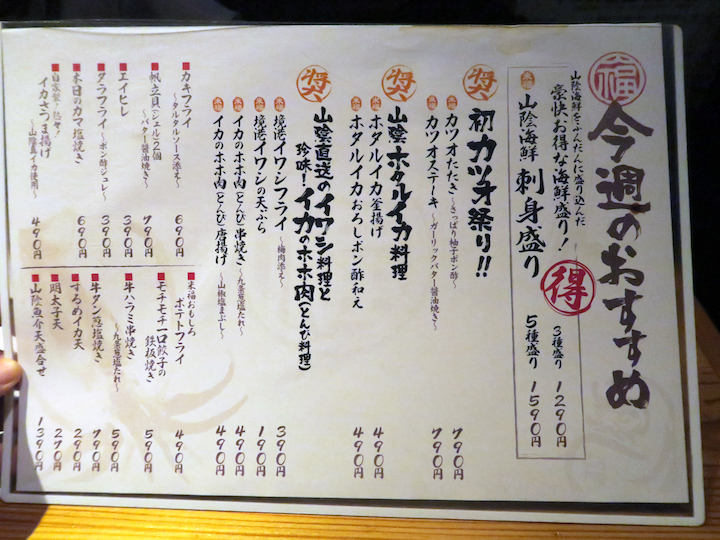 福
今週のおすすめ
山陰海鮮をふんだんに盛り込んだ
豪快お得な海鮮盛り!
山陰海鮮 刺身盛り
得
3種盛り 1290円
5種盛り 1590円
初カツオ祭り!!
カツオたたき ~さっぱり柚子ポン酢~ 790円
カツオステーキ ~ガーリックバター醤油焼き~ 790円
山陰ホタルイカ料理
ホタルイカ釜揚げ 490円
ホタルイカおろしポン酢和え 490円
山陰直送のイワシ料理と
珍味!イカのホホ肉(とんび料理)
境港イワシフライ ~梅肉添え~ 390円
境港イワシの天ぷら 190円
イカのホホ肉(とんび)串焼き ~九条葱塩たれ~ 490円
イカのホホ肉(とんび)唐揚げ ~山椒塩まぶし~ 490円
カキフライ
~タルタルソース添え~ 690円
帆立貝(ジェンボ)2個
~バター醤油焼き~ 790円
エイヒレ 390円
タラフライ ~ポン酢ジュレ~ 390円
本日のカマ塩焼き 690円
自家製・熱々!
イカさつま揚げ
~山陰直イカ使用~ 490円
米福おもしろ
ポテトフライ 490円
モチモチ一口餃子の
鉄板焼き 590円
牛ハラミ串焼き
~九条葱塩たれ~ 590円
牛タン葱塩焼き 790円
するめイカ天 290円
明太子天 270円
山陰魚介天盛合せ 1390円